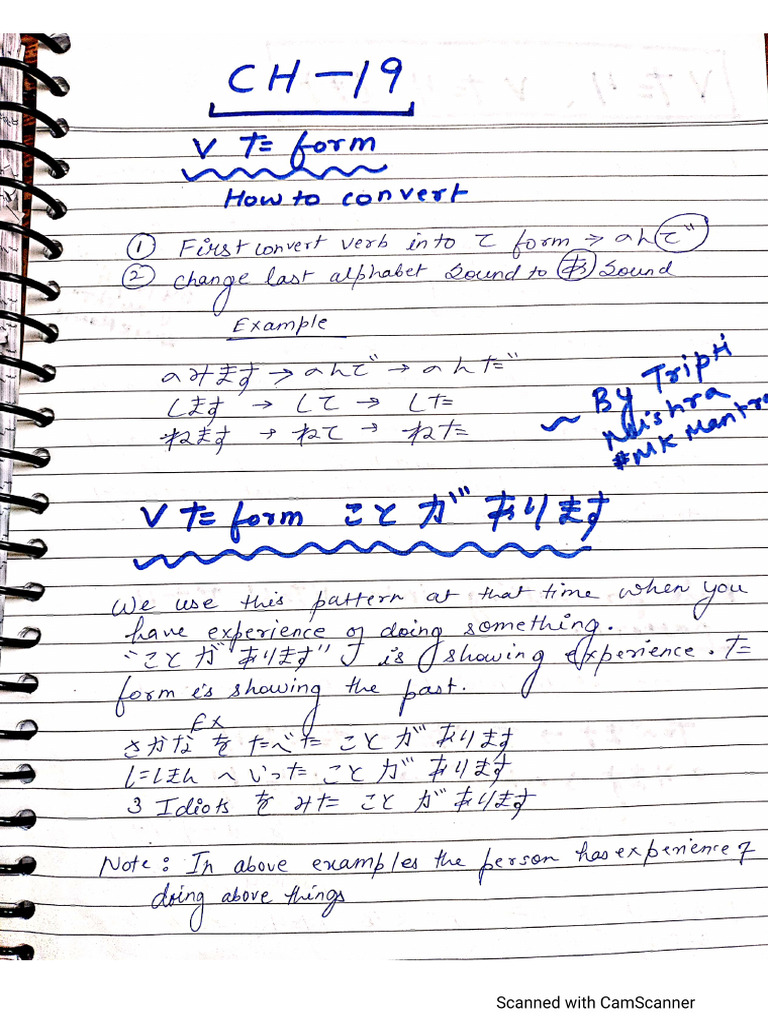 CH-19
V た form
How to convert
① First convert verb into て form → のんで
② change last alphabet sound to あ sound
Example
のみます → のんで → のんだ
します → して → した
ねます → ねて → ねた
By Tripti
Mishra
#MK Mantra
V た form ことが あります
We use this pattern at that time when you
have experience of doing something.
"ことが あります" is showing experience. た
form is showing the past.
Ex
さかな を たべた ことが あります
にほん へ いった ことが あります
3 Idiots を みた ことが あります
Note: In above examples the person has experience of
doing above things
Scanned with CamScanner